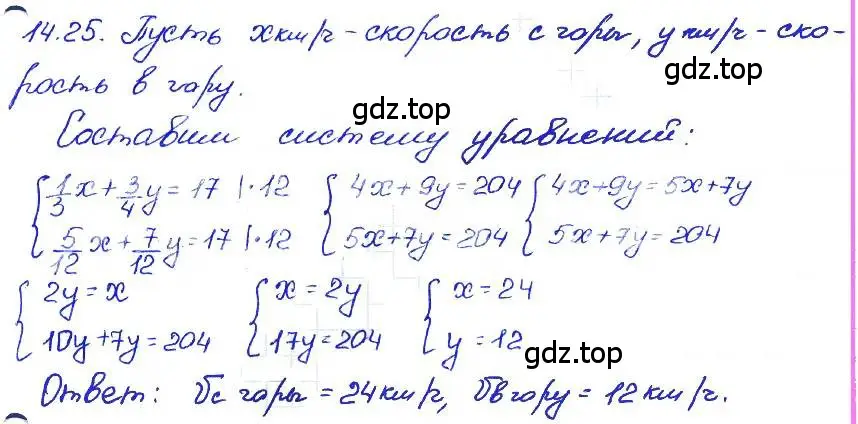 14.25. Пусть x км/ч - скорость с горы, y км/ч - ско-
рость в гору.
gdz.top
gdz.top
Составим систему уравнений:
{ 1/3 x + 3/4 y = 17 |·12 { 4x + 9y = 204 { 4x + 9y = 5x + 7y
{ 5/12 x + 7/12 y = 17 |·12 { 5x + 7y = 204 { 5x + 7y = 204
{ 2y = x { x = 2y { x = 24
{ 10y + 7y = 204 { 17y = 204 { y = 12
gdz.top
Ответ: Vс горы = 24 км/ч, Vв гору = 12 км/ч.